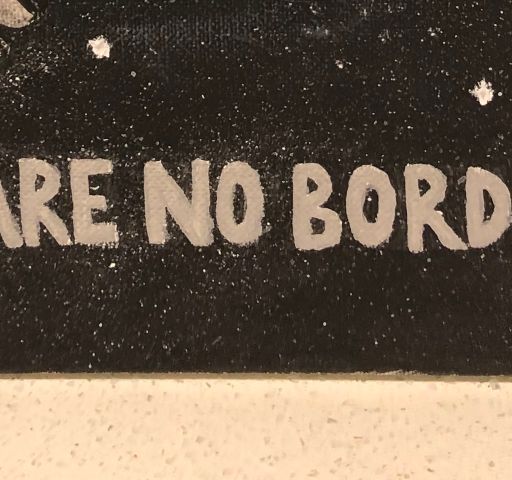 ARE NO BORD